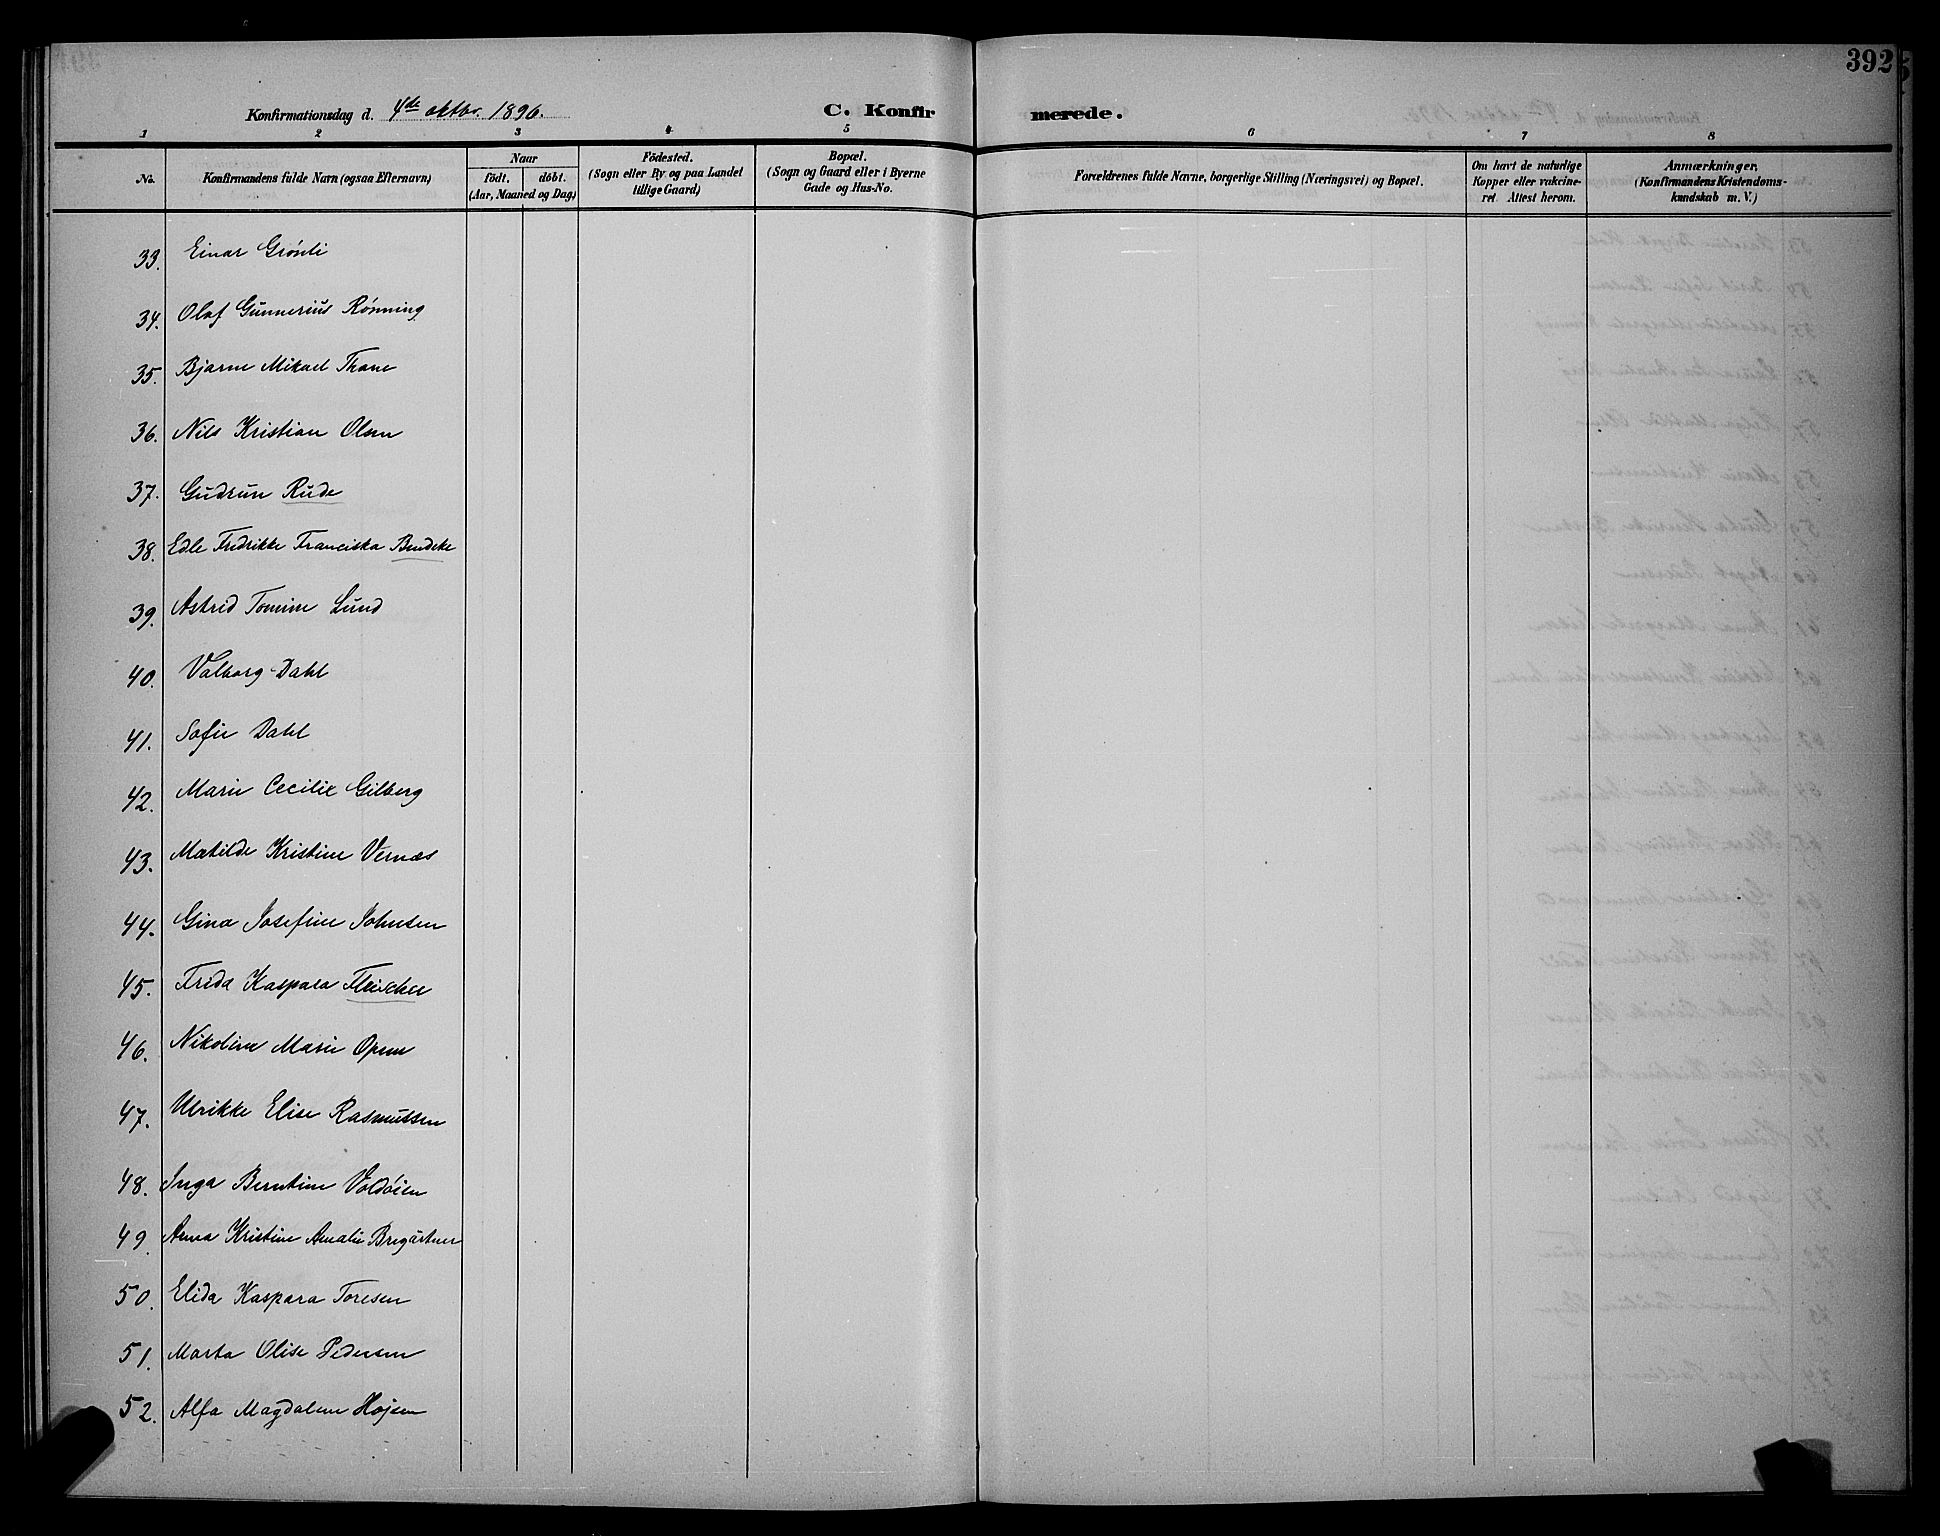 392
Konfirmationsdag d. 4de oktbr. 1896.
C. Konfirmerede.
1 2 3 4 5 6 7 8
No.
Konfirmandens fulde Navn (ogsaa Efternavn)
Naar
födt. döbt.
(Aar, Maaned og Dag)
Födested.
(Sogn eller By og paa Landet
tillige Gaard)
Bopæl.
(Sogn og Gaard eller i Byerne
Gade og Hus-No.
Forældrenes fulde Navne, borgerlige Stilling (Næringsvei) og Bopæl.
Om havt de naturlige
Kopper eller vakcine-
ret. Attest herom.
Anmærkninger,
(Konfirmandens Kristendoms-
kundskab m. V.)
33. Einar Grönli
34. Olaf Gunnerius Rönning
35. Bjarne Mikael Thane
36. Nils Kristian Olsen
37. Gudrun Rude
38. Edle Fredrikke Franciska Bendeke
39. Astrid Tomine Lund
40. Valborg Dahl
41. Sofie Dahl
42. Marie Cecilie Gilberg
43. Matilde Kristine Vernæs
44. Gina Josefine Johnsen
45. Frida Kaspara Fleischer
46. Nikoline Marie Opem
47. Ulrikke Elise Rasmussen
48. Inga Berntine Voldöien
49. Anna Kristine Amalie Bregärtner
50. Elida Kaspara Toresen
51. Marta Olise Pedersen
52. Alfa Magdalene Hojem